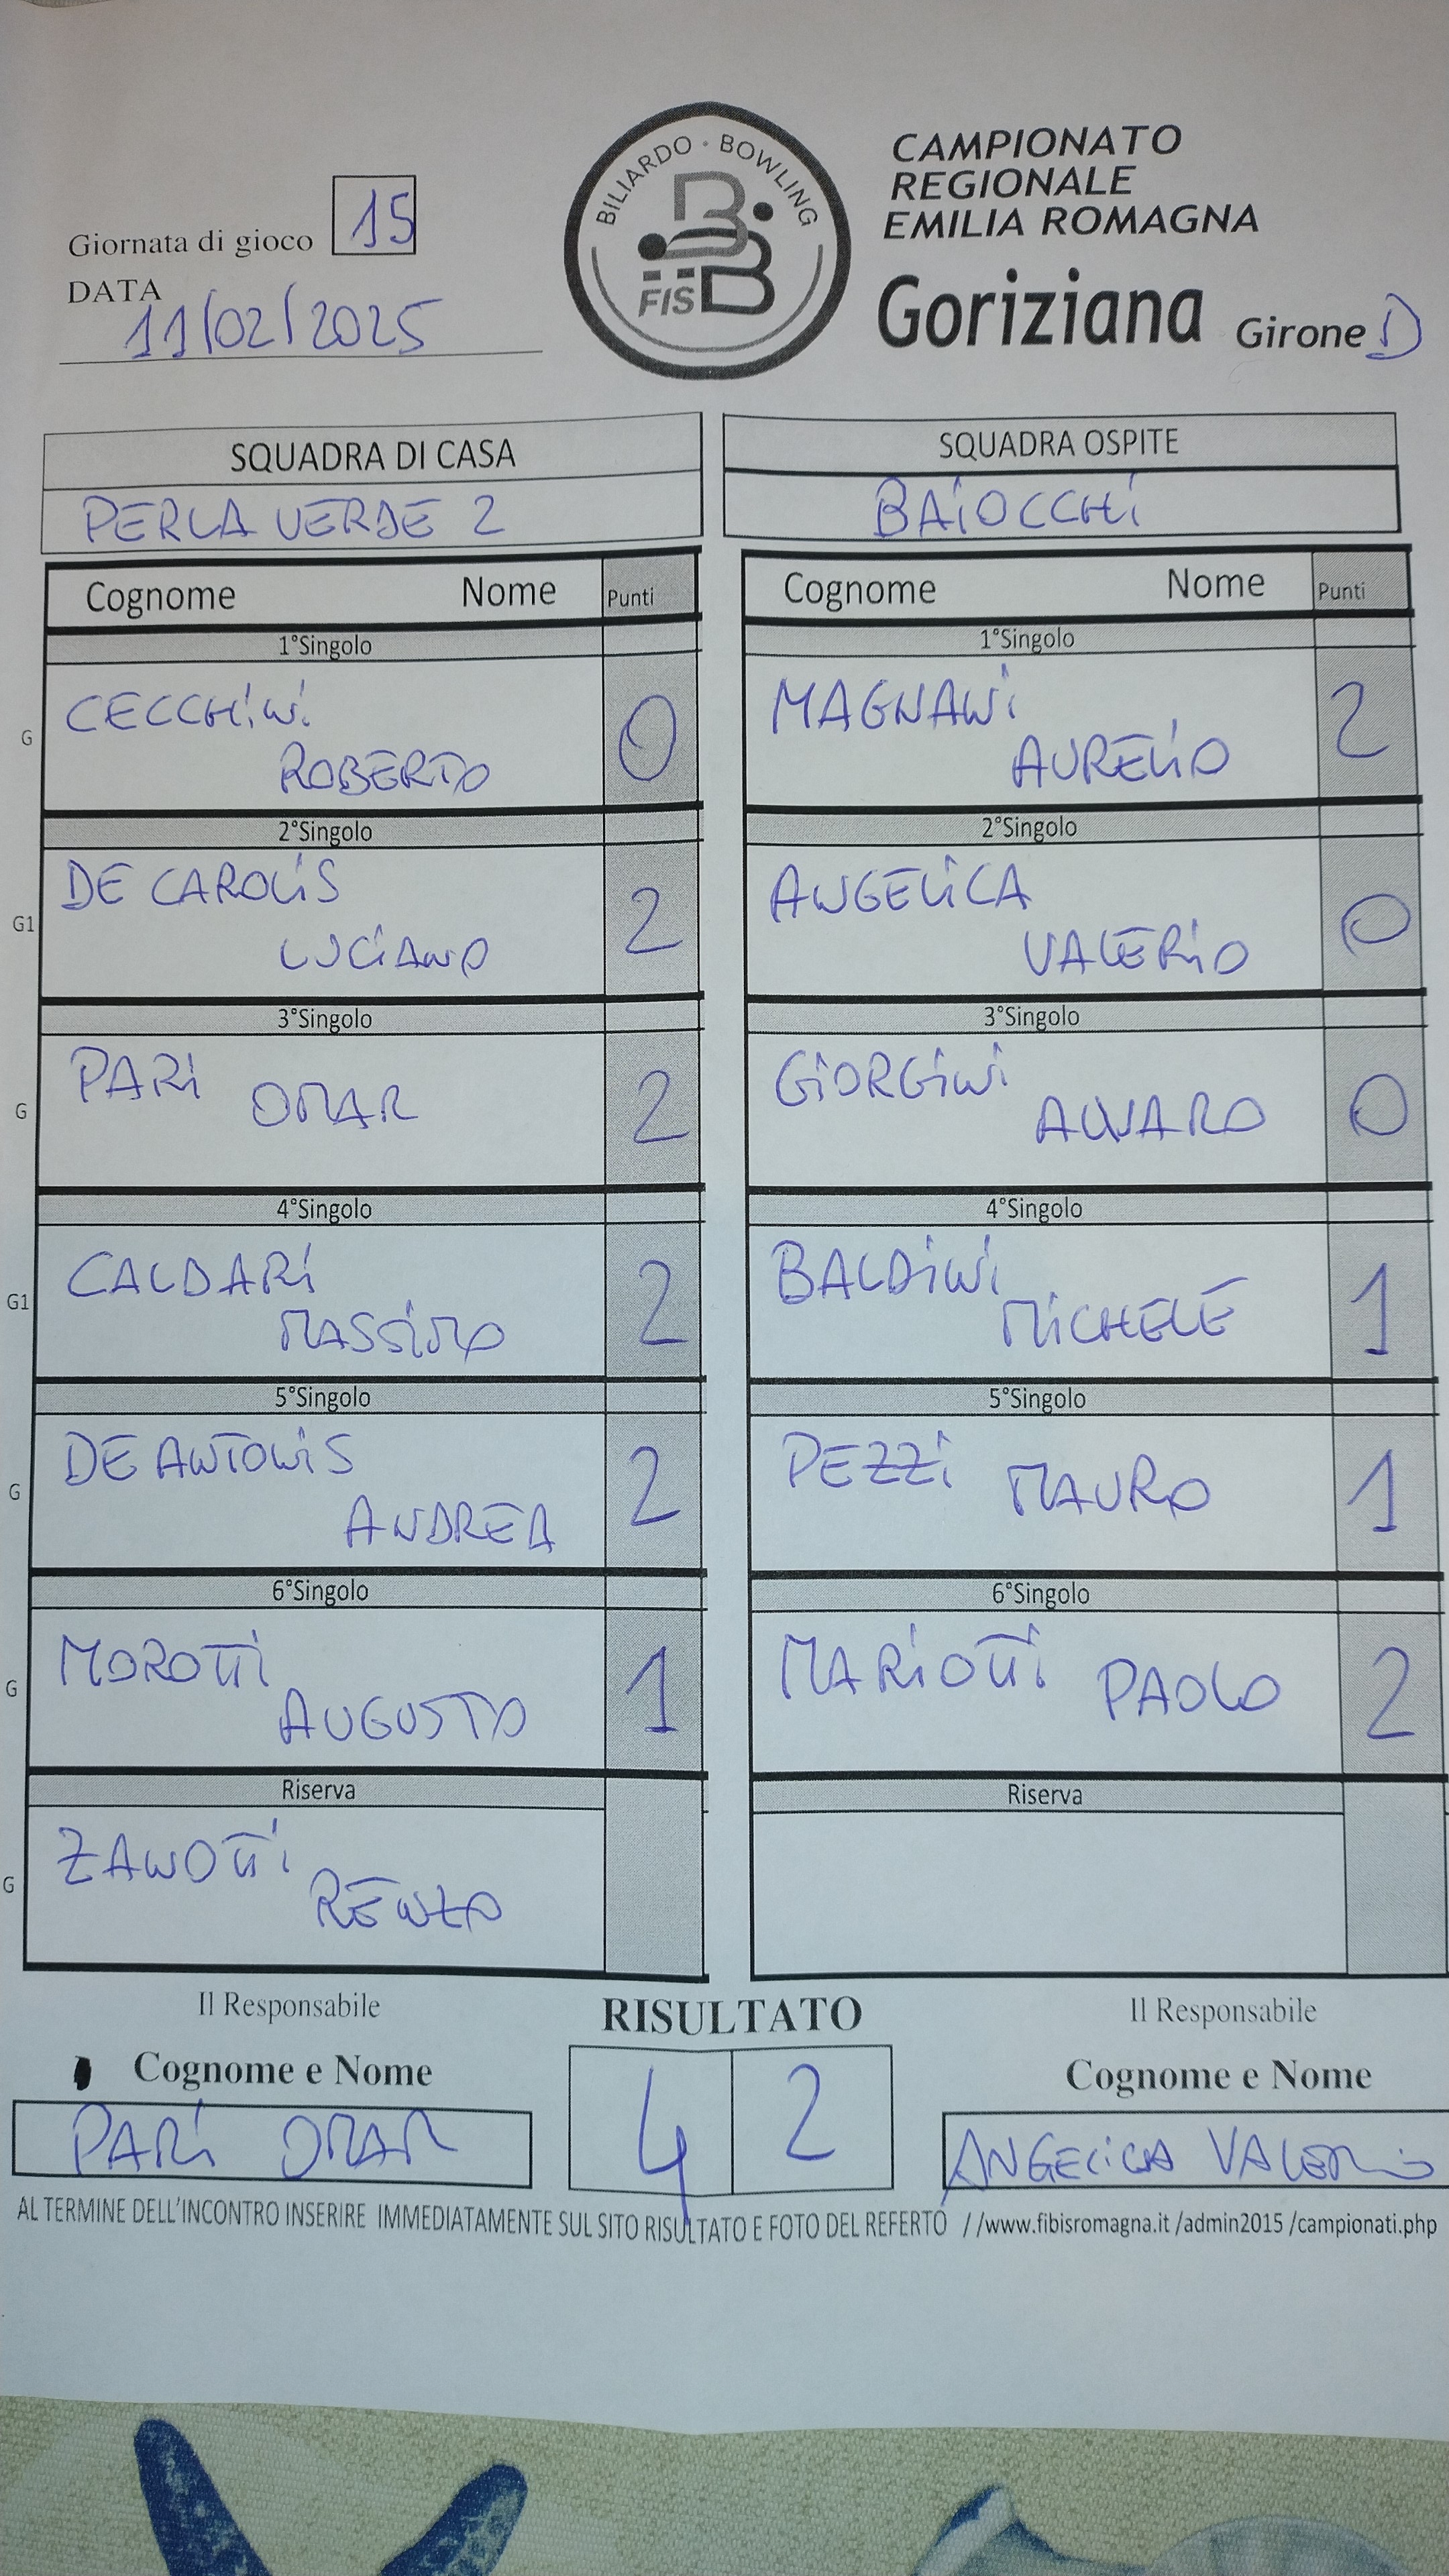 BILIARDO · BOWLING
FISBB
CAMPIONATO
REGIONALE
EMILIA ROMAGNA
Goriziana Girone D
Giornata di gioco 15
DATA
11/02/2025
SQUADRA DI CASA
PERLA VERDE 2
SQUADRA OSPITE
BAIOCCHI
Cognome Nome Punti
Cognome Nome Punti
1°Singolo
G CECCHINI
ROBERTO 0
1°Singolo
MAGNANI
AURELIO 2
2°Singolo
G1 DE CAROLIS
LUCIANO 2
2°Singolo
ANGELICA
VALERIO 0
3°Singolo
G PARI OMAR 2
3°Singolo
GIORGINI
ALVARO 0
4°Singolo
G1 CALDARI
MASSIMO 2
4°Singolo
BALDINI
MICHELE 1
5°Singolo
G DE ANTONIS
ANDREA 2
5°Singolo
PEZZI MAURO 1
6°Singolo
G MOROTTI
AUGUSTO 1
6°Singolo
MARIOTTI PAOLO 2
Riserva
G ZANOTTI
RENZO
Riserva
Il Responsabile
Cognome e Nome
PARI OMAR
RISULTATO
4 2
Il Responsabile
Cognome e Nome
ANGELICA VALERIO
AL TERMINE DELL'INCONTRO INSERIRE IMMEDIATAMENTE SUL SITO RISULTATO E FOTO DEL REFERTO //www.fibisromagna.it /admin2015 /campionati.php